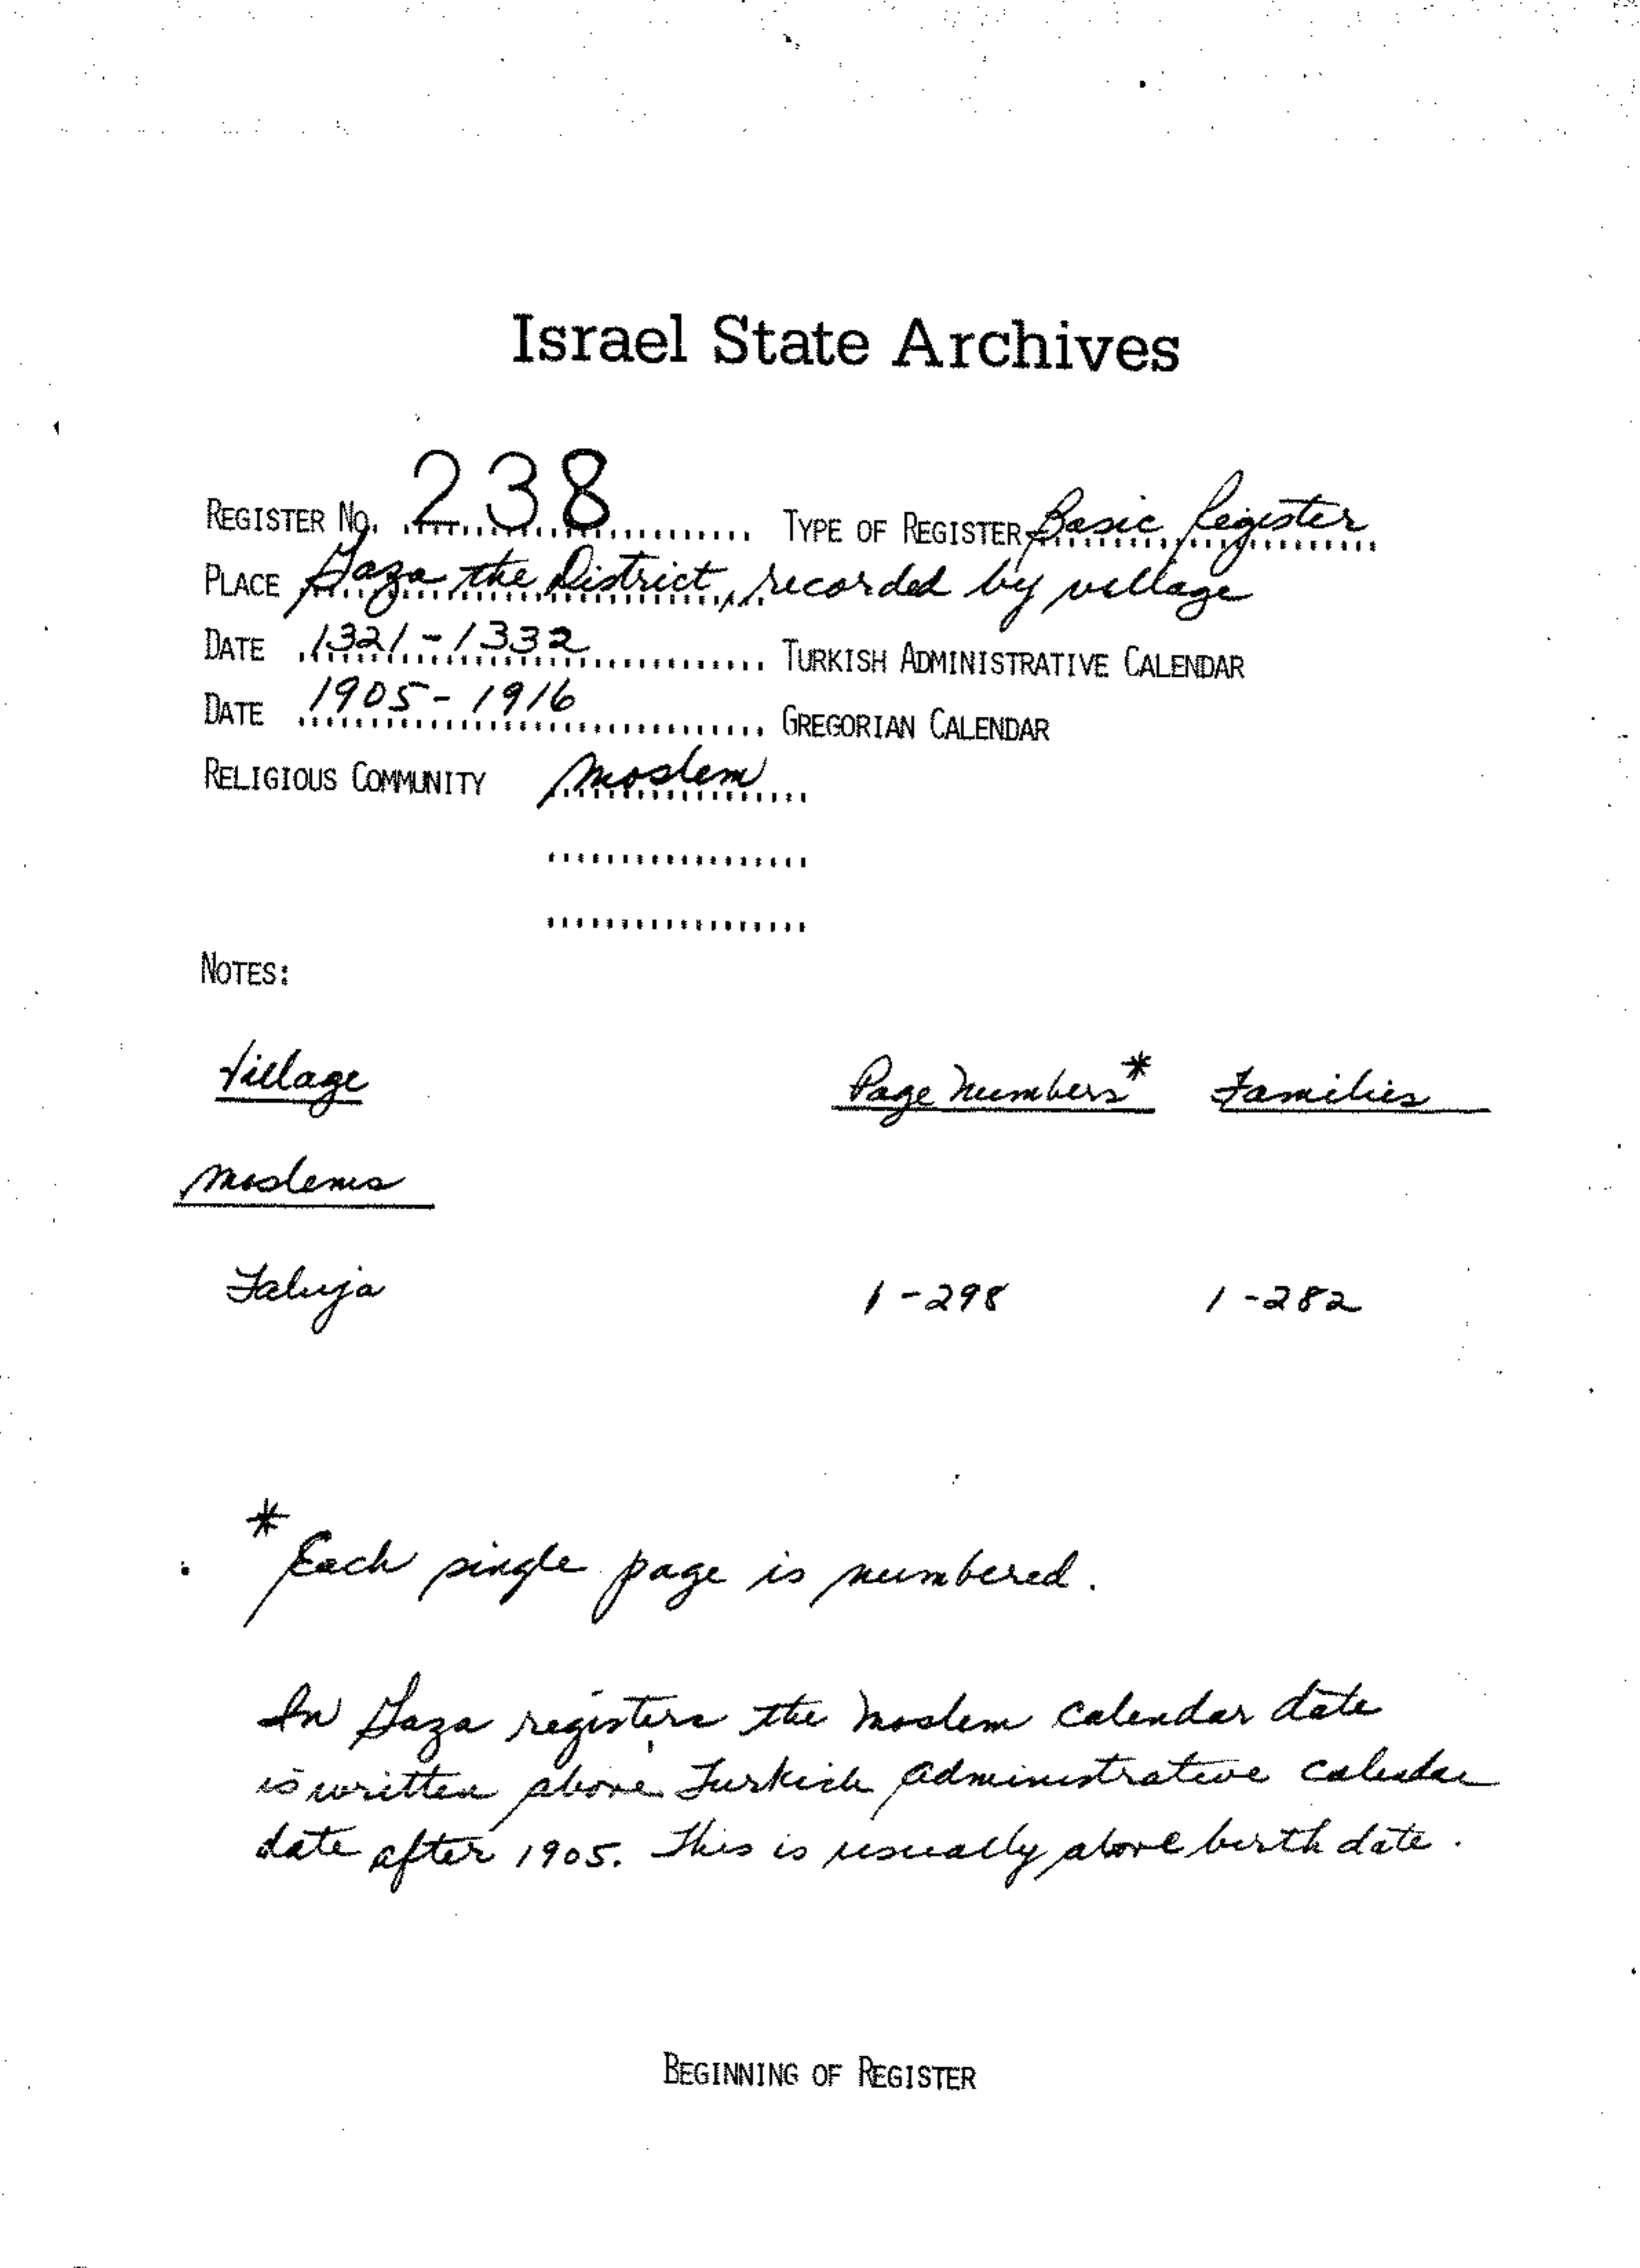 Israel State Archives
REGISTER NO. 238 TYPE OF REGISTER Basic Register
PLACE Gaza the District, recorded by village
DATE 1321-1332 TURKISH ADMINISTRATIVE CALENDAR
DATE 1905-1916 GREGORIAN CALENDAR
RELIGIOUS COMMUNITY Moslem
NOTES:
Village Page Numbers* Families
Moslems
Faluja 1-298 1-282
* Each single page is numbered.
In Gaza registers the Moslem calendar date
is written above Turkish administrative calendar
date after 1905. This is usually above birth date.
BEGINNING OF REGISTER